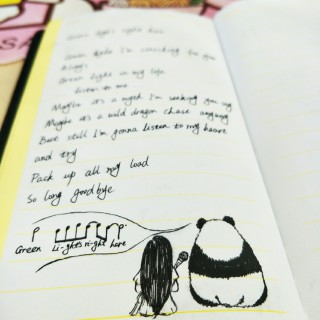 Green light's right here
Green light I'm searching for you
Always
Green light in my life
listen to me
Maybe it's a myth I'm seeking you my
Maybe it's a wild dragon chase anyway
But still I'm gonna listen to my heart
and try
Pack up all my load
So long goodbye
Green Li-ght's right here